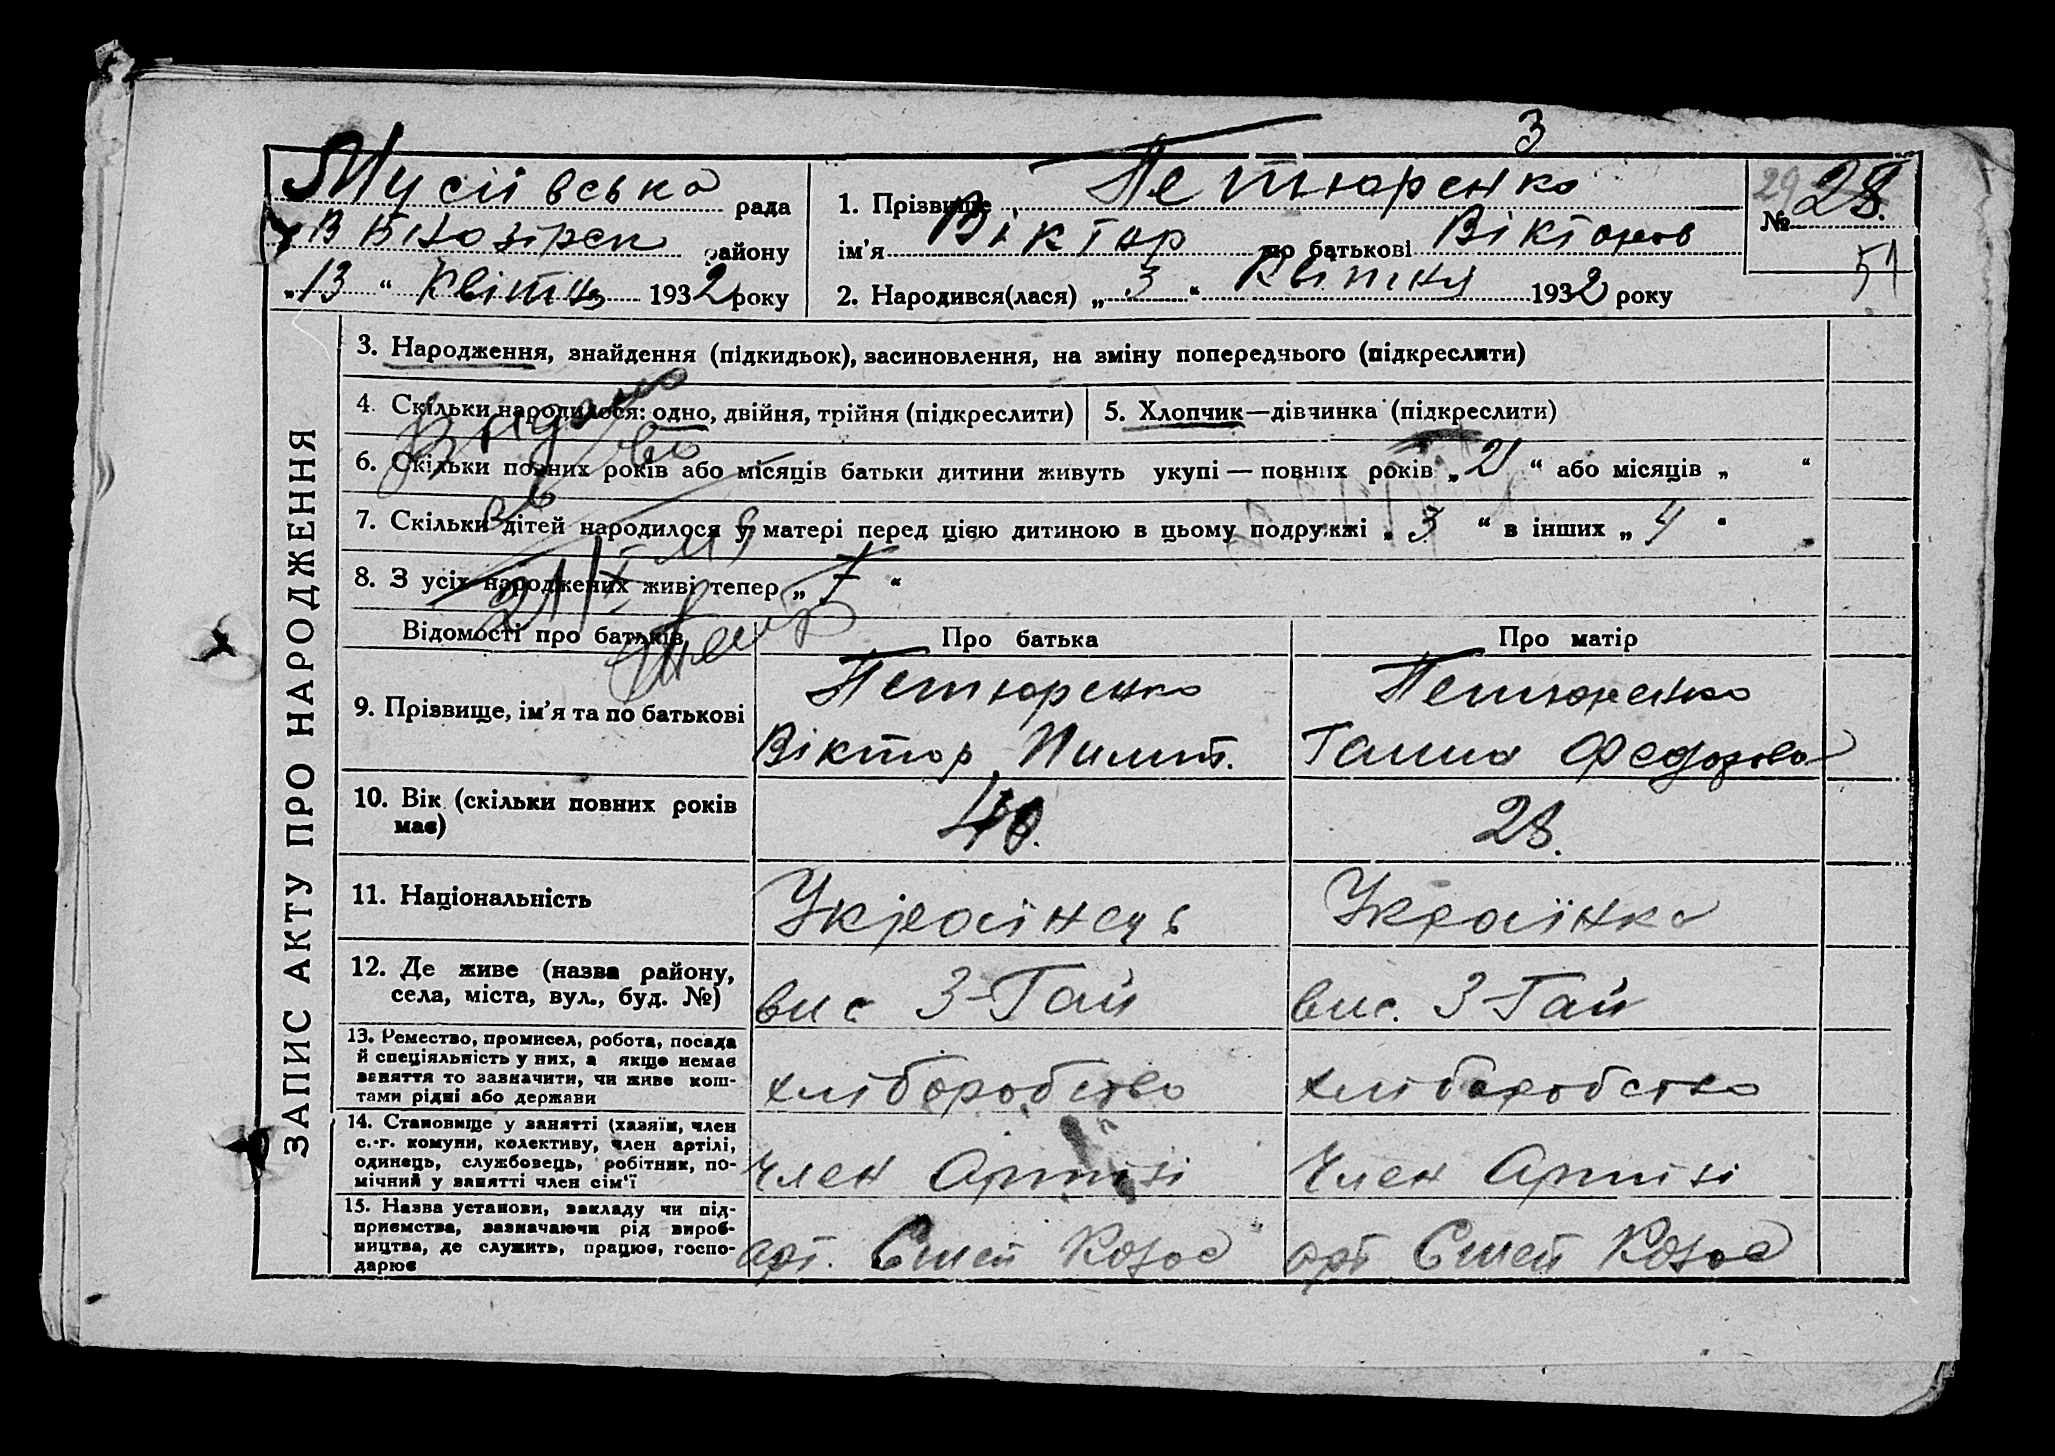 3
Мусіївська рада
В Білозірськ району
„13“ Квітня 1932 року
1. Прізвище Петюренко
ім’я Віктор по батькові Вікторов
2. Народився(лася) „3“ Квітня 1932 року
29 № 28.
51
ЗАПИС АКТУ ПРО НАРОДЖЕННЯ
3. Народження, знайдення (підкидьок), засиновлення, на зміну попереднього (підкреслити)
4. Скільки народилося: одно, двійня, трійня (підкреслити)
5. Хлопчик—дівчинка (підкреслити)
6. Скільки повних років або місяців батьки дитини живуть укупі — повних років „2“ або місяців „ “
7. Скільки дітей народилося у матері перед цією дитиною в цьому подружжі „3“ в інших „4“
8. З усіх народжених живі тепер „7“
Видано
Відомості про батьків
Про батька
Про матір
9. Прізвище, ім’я та по батькові
Петюренко
Віктор Пилип.
Петюренко
Ганна Федорова
10. Вік (скільки повних років має)
40.
28.
11. Національність
Українець
Українка
12. Де живе (назва району, села, міста, вул., буд. №)
вис 3-Гай
вис. 3-Гай
13. Ремество, промисел, робота, посада
й спеціяльність у них, а якщо немає
заняття то зазначити, чи живе кош-
тами рідні або держави
хліборобство
хліборобство
14. Становище у занятті (хазяїн, член
с.-г. комуни, колективу, член артілі,
одинець, службовець, робітник, по-
мічний у занятті член сім’ї
Член Артілі
Член Артілі
15. Назва установи, закладу чи під-
приємства, зазначаючи рід вироб-
ництва, де служить, працює, госпо-
дарює
арт.
арт